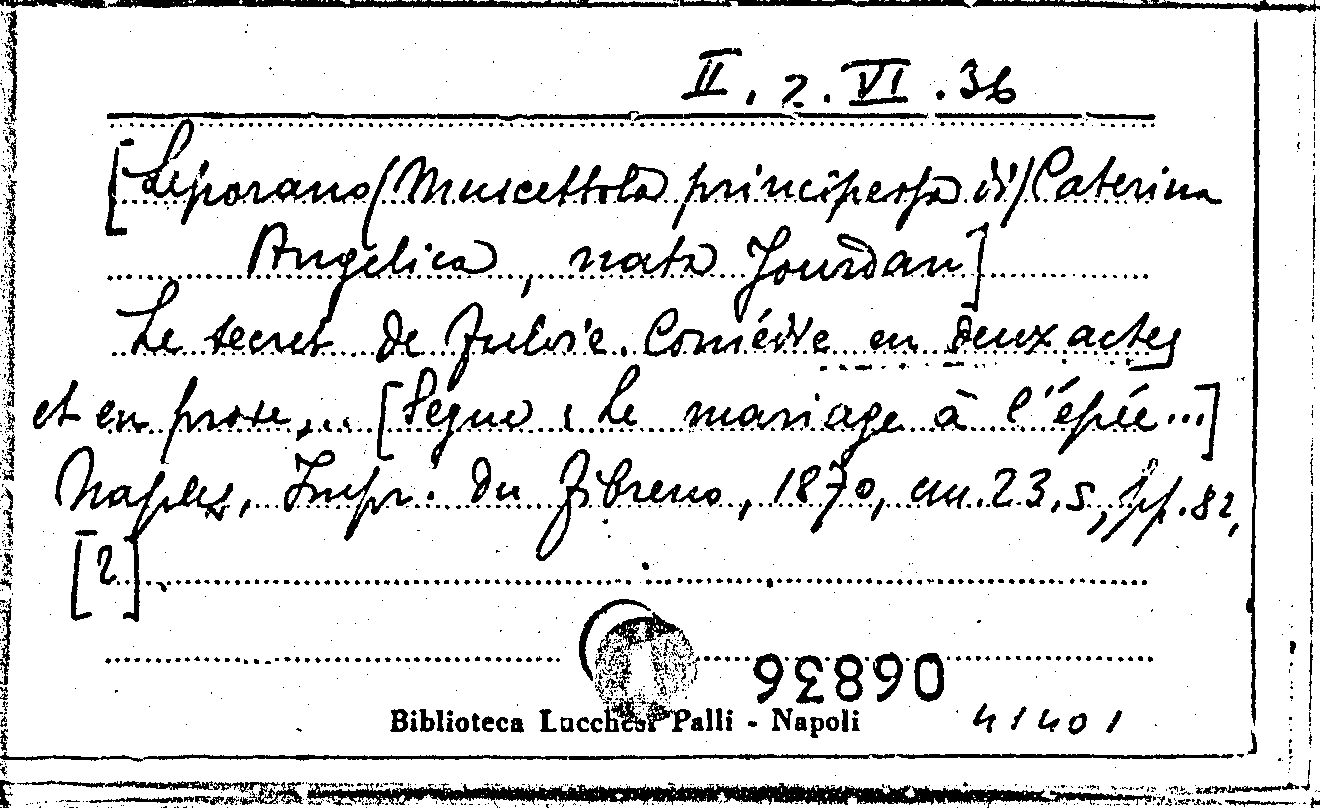 II. 2. VI. 36
[Leporano (Muscettola principessa di) Caterina
Angelica, nata Jourdan]
Le secret de Fulvie. Comédie en deux actes
et en prose,... [Segue: Le mariage à l'épée...]
Naples, Impr. du Fibreno, 1870, cm. 23,5, pp. 82,
[2].
06836
Biblioteca Lucchesi Palli - Napoli 41401